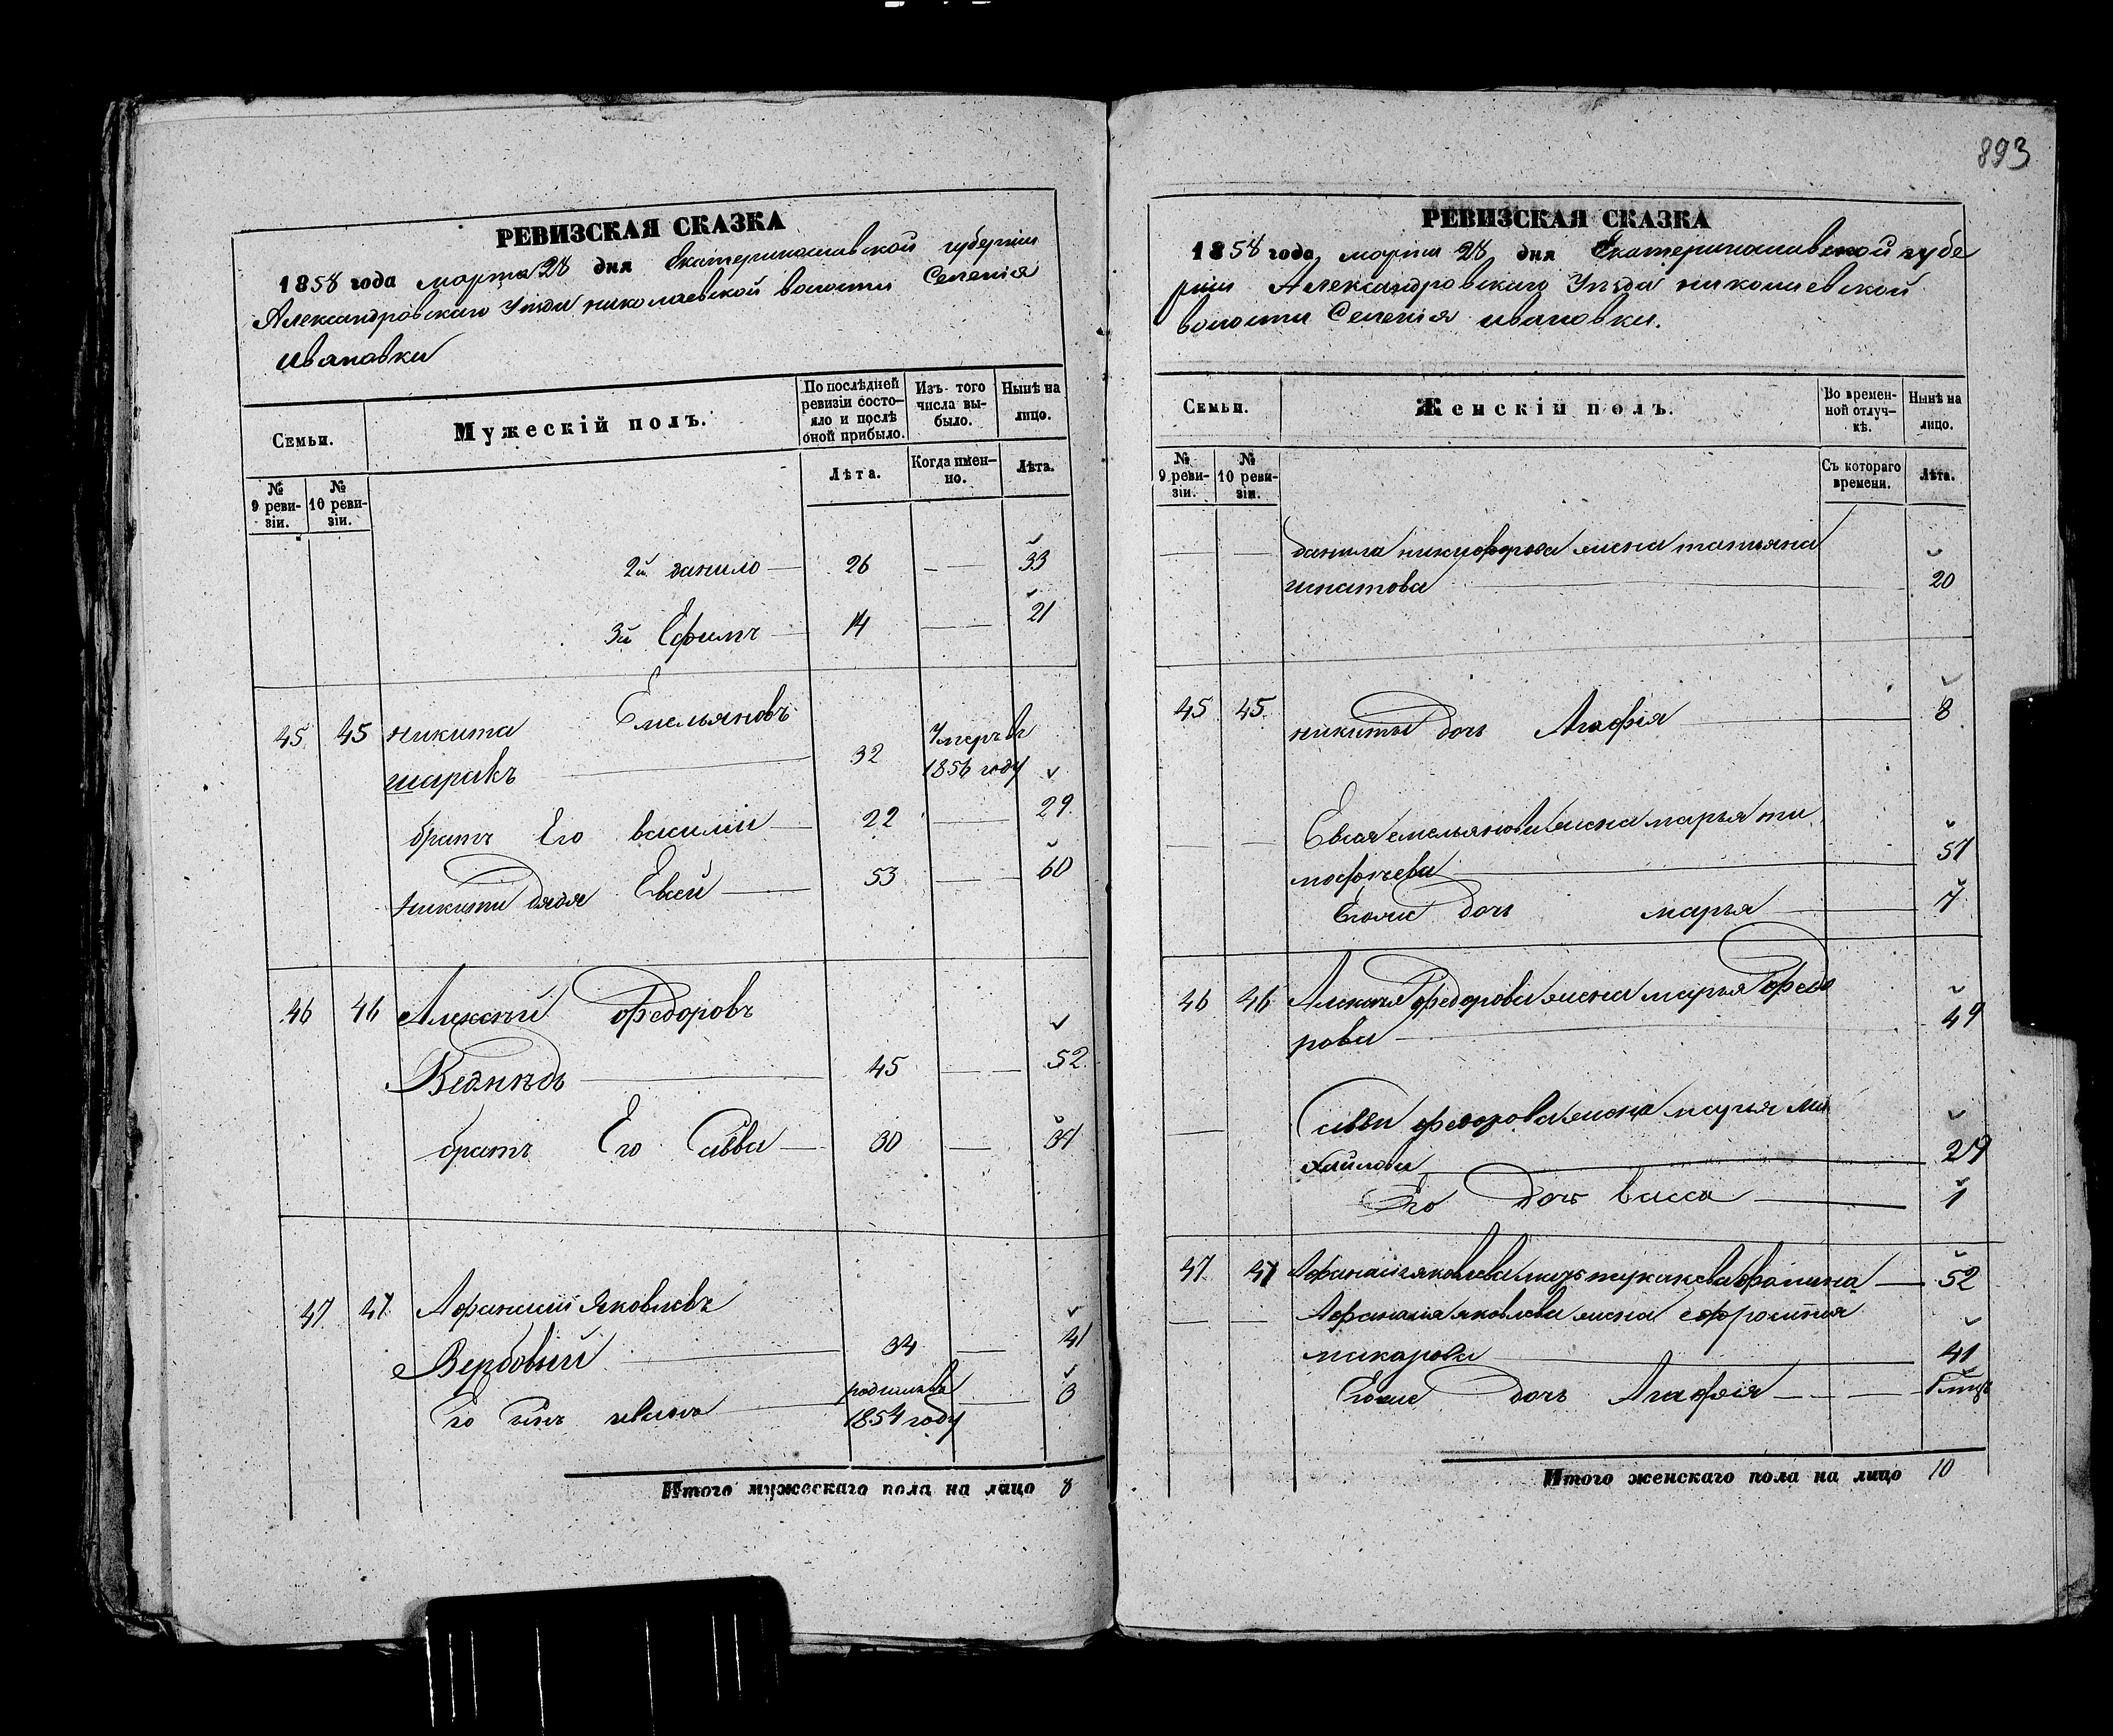 893
РЕВИЗСКАЯ СКАЗКА
1858 года марта 28 дня Екатеринославской губернии
Александровскаго Уѣзда николаевской волости Селенія
ивановки
Семьи.
Мужескій полъ.
По послѣдней ревизіи состояло и послѣ оной прибыло.
Изъ того числа выбыло.
Нынѣ на лицо.
№ 9 ревизіи.
№ 10 ревизіи.
Лѣта.
Когда имен-но.
Лѣта.
2й данило 26 33
3й Ефимъ 14 21
45 45 никита Емельяновъ
шаракъ 32 Умеръ въ 1856 году
братъ Его василий 22 29
никиты дядя Евсей 53 60
46 46 Алексѣй Федоровъ
Ведмѣдь 45 52
братъ Его Савва 30 37
47 47 Афанасий Яковлевъ
Вербовый 34 41
Его сынъ иванъ 1854 году 3
Итого мужескаго пола на лицо 8
РЕВИЗСКАЯ СКАЗКА
1858 года марта 28 дня Екатеринославской губе
рніи Александровскаго Уѣзда николаевской
волости Селенія ивановки.
Семьи.
Женскій полъ.
Во времен-ной отлуч-кѣ.
Нынѣ на лицо.
№ 9 реви-зіи.
№ 10 реви-зіи.
Съ котораго времени.
Лѣта.
данила никифорова жена татьяна
игнатова 20
45 45 никиты дочь Агафія 8
Евсея емельянова жена марья ти
мофѣева 57
Егоже дочь марья 7
46 46 Алексѣя Федорова жена марья Федо
рова 49
Саввы федорова жена марья Ми
хайлова 27
Его дочь васса 1
47 47 Афанасія яковлева мать 52
Афанасія яковлева жена ефросинія
макарова 41
Егоже дочь Агафія
Итого женскаго пола на лицо 10